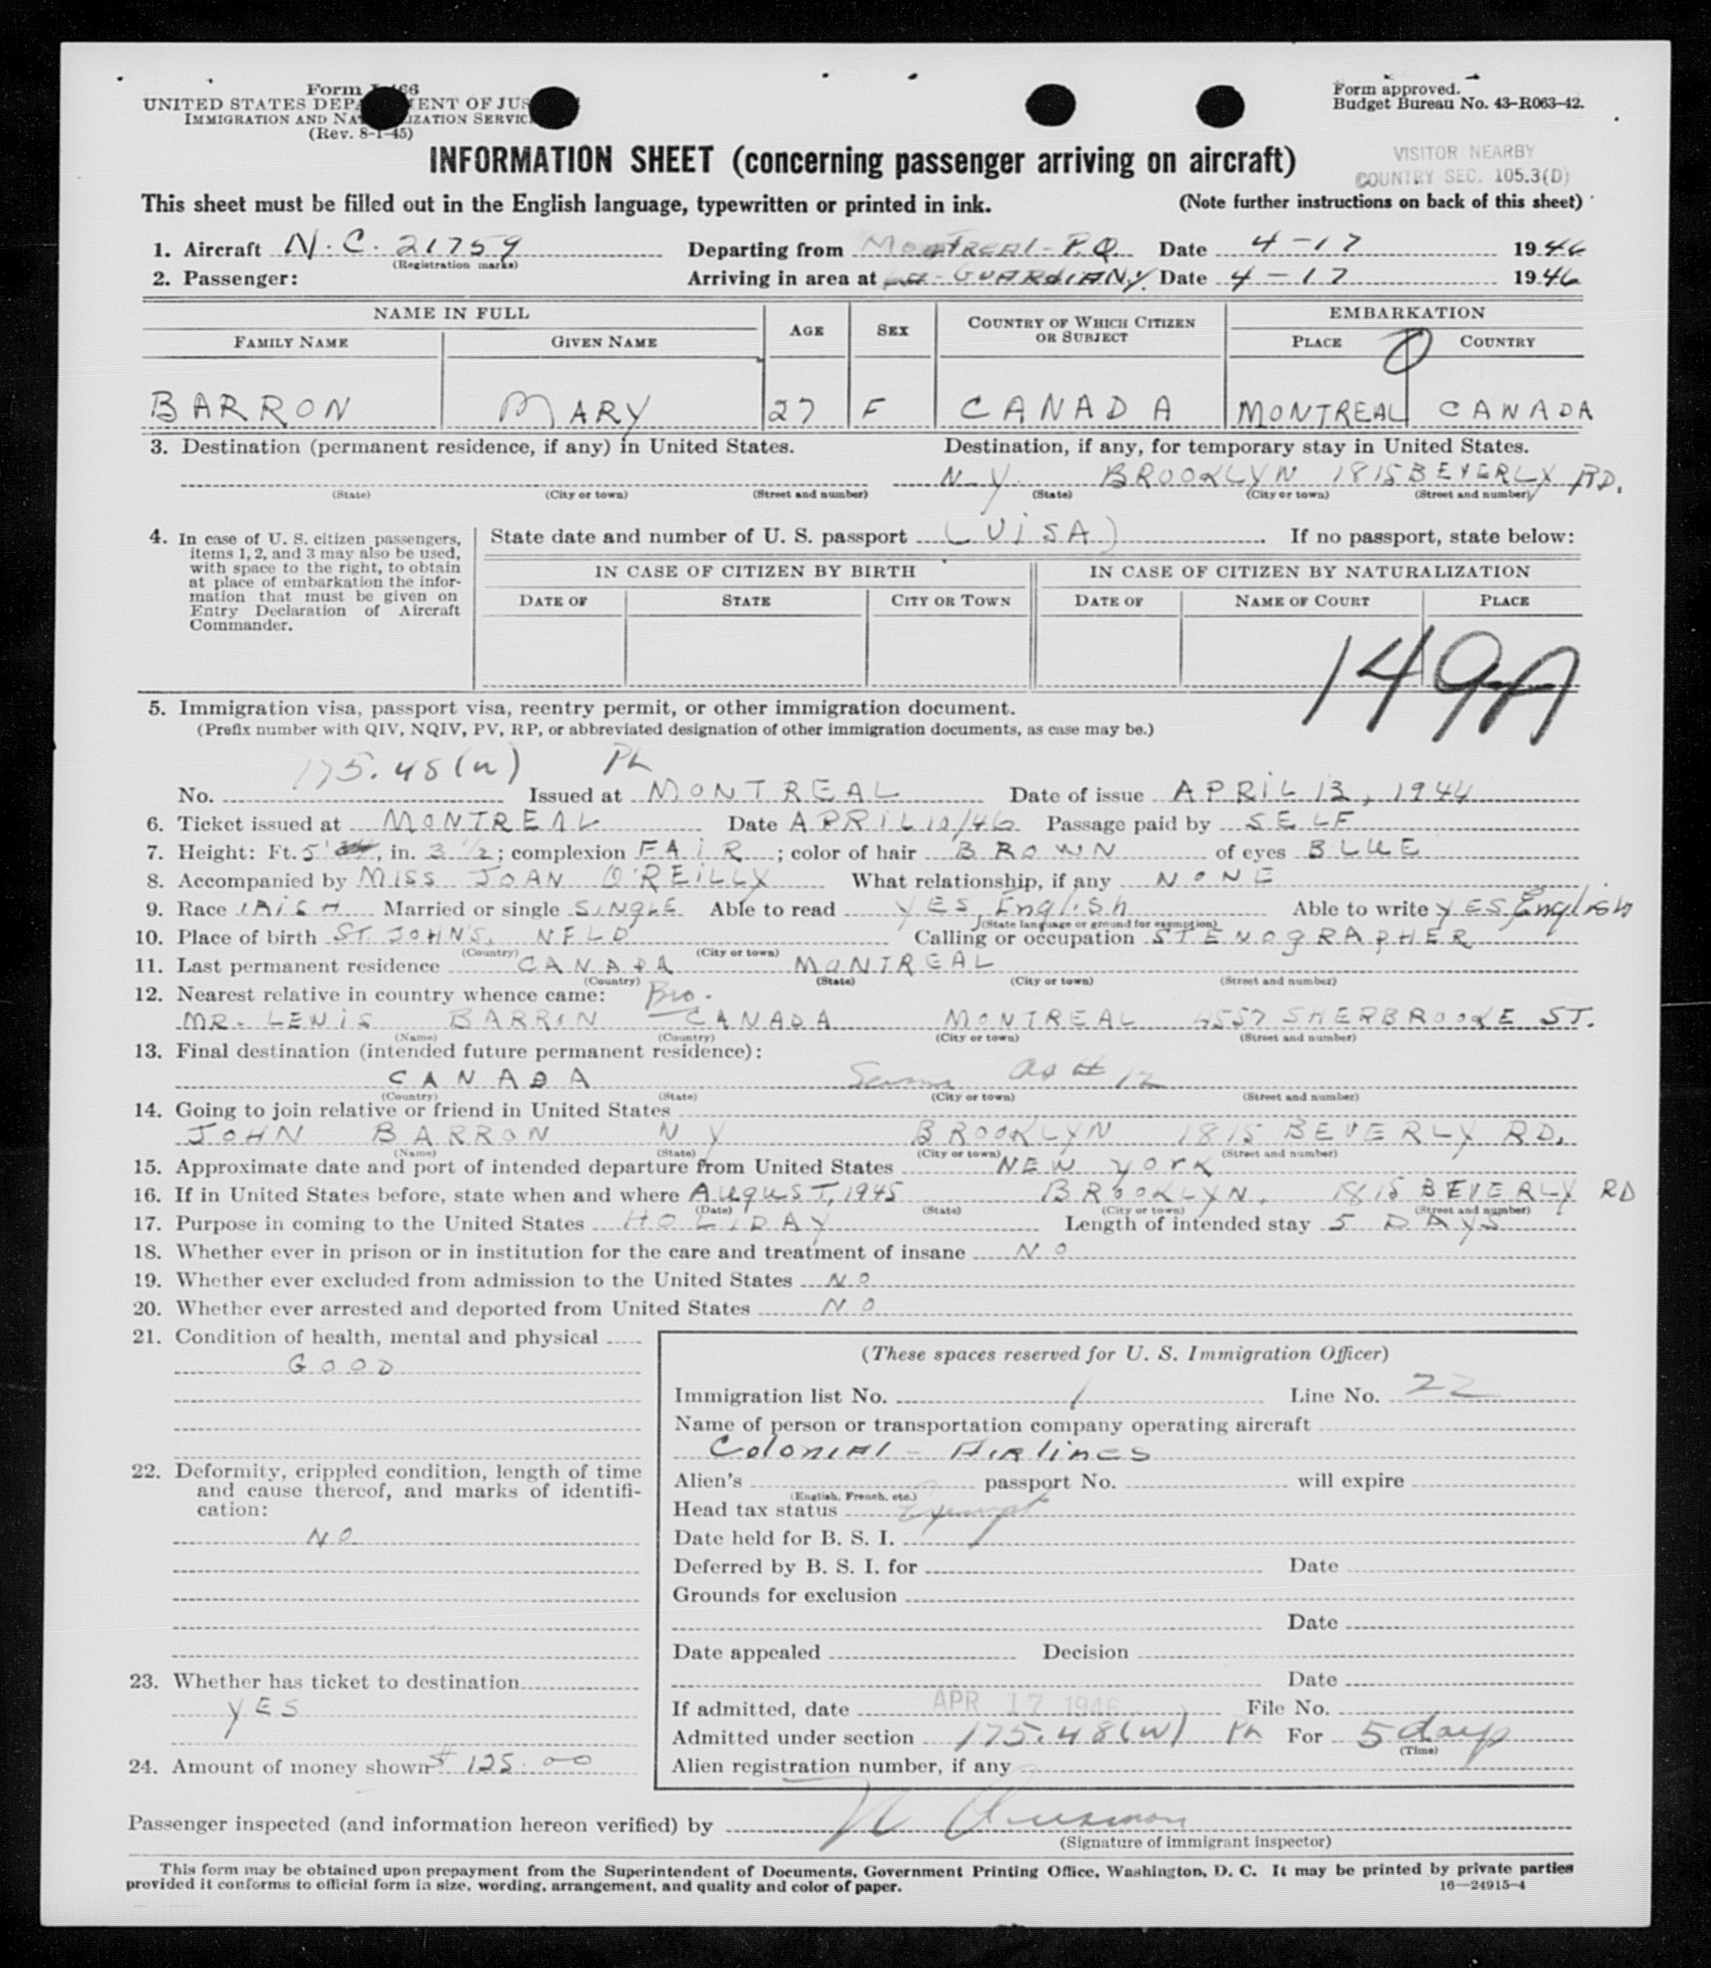 Form I-466
UNITED STATES DEPARTMENT OF JUSTICE
IMMIGRATION AND NATURALIZATION SERVICE
(Rev. 8-1-45)
Form approved.
Budget Bureau No. 43-R063-42.
VISITOR NEARBY
COUNTRY SEC. 105.3(D)
INFORMATION SHEET (concerning passenger arriving on aircraft)
This sheet must be filled out in the English language, typewritten or printed in ink. (Note further instructions on back of this sheet)
1. Aircraft N.C. 21759 Departing from MONTREAL-P.Q. Date 4-17 1946
(Registration marks)
2. Passenger: Arriving in area at LA-GUARDIA N.Y. Date 4-17 1946
NAME IN FULL AGE SEX COUNTRY OF WHICH CITIZEN OR SUBJECT EMBARKATION
FAMILY NAME GIVEN NAME PLACE COUNTRY
BARRON MARY 27 F CANADA MONTREAL CANADA
3. Destination (permanent residence, if any) in United States. Destination, if any, for temporary stay in United States.
N.Y. BROOKLYN 1815 BEVERLY RD.
(State) (City or town) (Street and number) (State) (City or town) (Street and number)
4. In case of U. S. citizen passengers, items 1, 2, and 3 may also be used, with space to the right, to obtain at place of embarkation the information that must be given on Entry Declaration of Aircraft Commander.
State date and number of U. S. passport (VISA) If no passport, state below:
IN CASE OF CITIZEN BY BIRTH IN CASE OF CITIZEN BY NATURALIZATION
DATE OF STATE CITY OR TOWN DATE OF NAME OF COURT PLACE
149A
5. Immigration visa, passport visa, reentry permit, or other immigration document.
(Prefix number with QIV, NQIV, PV, RP, or abbreviated designation of other immigration documents, as case may be.)
175.48(w) Ph
No. Issued at MONTREAL Date of issue APRIL 13, 1944
6. Ticket issued at MONTREAL Date APRIL 10/46 Passage paid by SELF
7. Height: Ft. 5', in. 3 1/2; complexion FAIR; color of hair BROWN of eyes BLUE
8. Accompanied by MISS JOAN O'REILLY What relationship, if any NONE
9. Race IRISH Married or single SINGLE Able to read YES, English Able to write YES, English
(State language or ground for exemption)
10. Place of birth ST. JOHN'S, NFLD Calling or occupation STENOGRAPHER
(Country) (City or town)
11. Last permanent residence CANADA MONTREAL
(Country) (State) (City or town) (Street and number)
12. Nearest relative in country whence came: Bro.
MR. LEWIS BARRON CANADA MONTREAL 4557 SHERBROOKE ST.
(Name) (Country) (City or town) (Street and number)
13. Final destination (intended future permanent residence):
CANADA Same as # 12
(Country) (State) (City or town) (Street and number)
14. Going to join relative or friend in United States
JOHN BARRON N Y BROOKLYN 1815 BEVERLY RD.
(Name) (State) (City or town) (Street and number)
15. Approximate date and port of intended departure from United States NEW YORK
16. If in United States before, state when and where AUGUST, 1945 BROOKLYN, 1815 BEVERLY RD
(Date) (State) (City or town) (Street and number)
17. Purpose in coming to the United States HOLIDAY Length of intended stay 5 DAYS
18. Whether ever in prison or in institution for the care and treatment of insane NO
19. Whether ever excluded from admission to the United States NO
20. Whether ever arrested and deported from United States NO
21. Condition of health, mental and physical
GOOD
22. Deformity, crippled condition, length of time and cause thereof, and marks of identification:
NO
23. Whether has ticket to destination
YES
24. Amount of money shown $ 125.00
(These spaces reserved for U. S. Immigration Officer)
Immigration list No. 1 Line No. 22
Name of person or transportation company operating aircraft
Colonial - Airlines
Alien's passport No. will expire
(English, French, etc.)
Head tax status Exempt
Date held for B. S. I.
Deferred by B. S. I. for Date
Grounds for exclusion
Date
Date appealed Decision
Date
If admitted, date APR 17 1946 File No.
Admitted under section 175.48(w) Ph For 5 days
(Time)
Alien registration number, if any
Passenger inspected (and information hereon verified) by
(Signature of immigrant inspector)
This form may be obtained upon prepayment from the Superintendent of Documents, Government Printing Office, Washington, D. C. It may be printed by private parties
provided it conforms to official form in size, wording, arrangement, and quality and color of paper. 16—24915-4